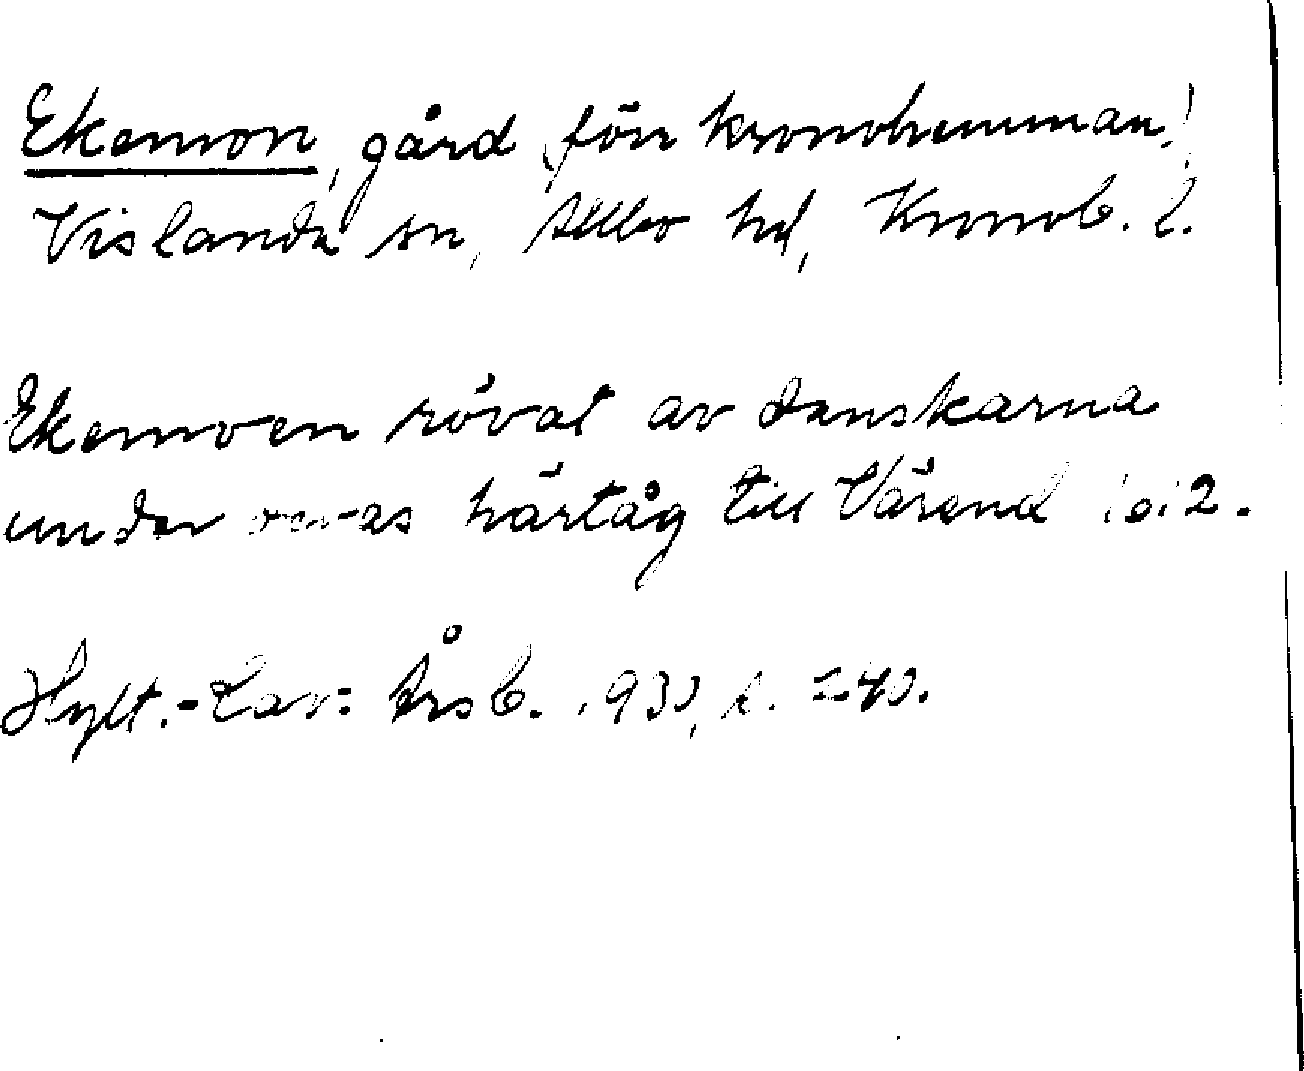 Ekemon, gård (förr kronohemman)
Vislanda sn, Allbo hd, Kronob. l.
Ekemoen rövat av danskarna
under deras härtåg till Värend 1612.
Hylt.-Cav: Årsb. 1930, s. 240.